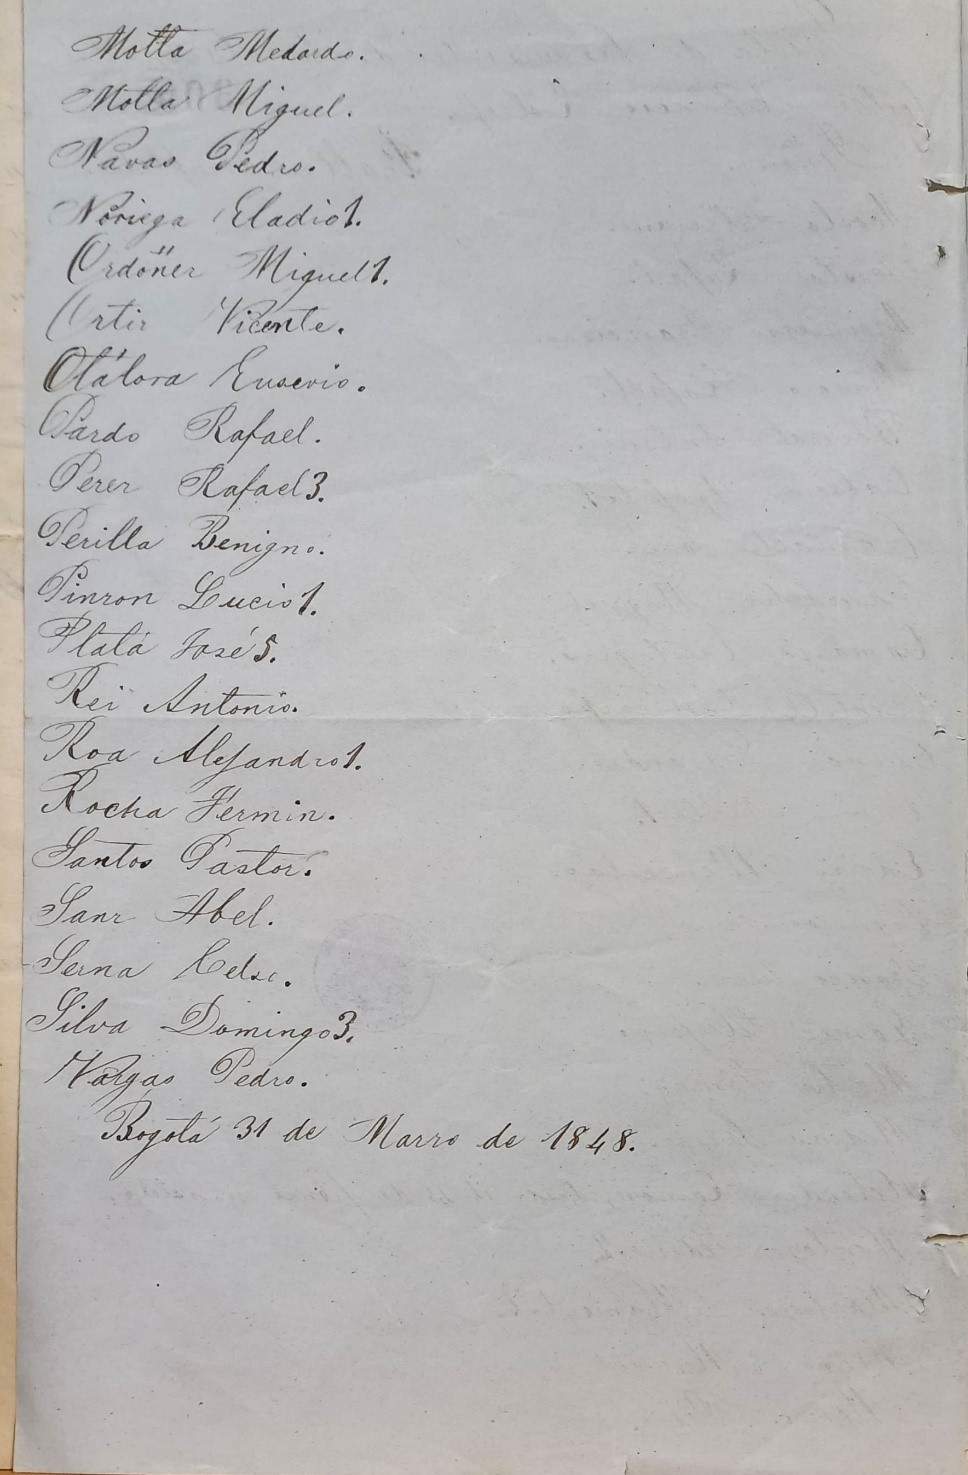 Motta Medardo.
Motta Miguel.
Navas Pedro.
Noriega Eladio 1.
Ordoñer Miguel 1.
Ortir Vicente.
Otálora Eusevio.
Pardo Rafael.
Perer Rafael 3.
Perilla Benigno.
Pinron Lucio 1.
Plata José 5.
Rei Antonio.
Roa Alejandro 1.
Rocha Fermin.
Santos Pastor.
Sanr Abel.
Serna Celso.
Silva Domingo 3.
Vargas Pedro.
Bogotá 31 de Marro de 1848.